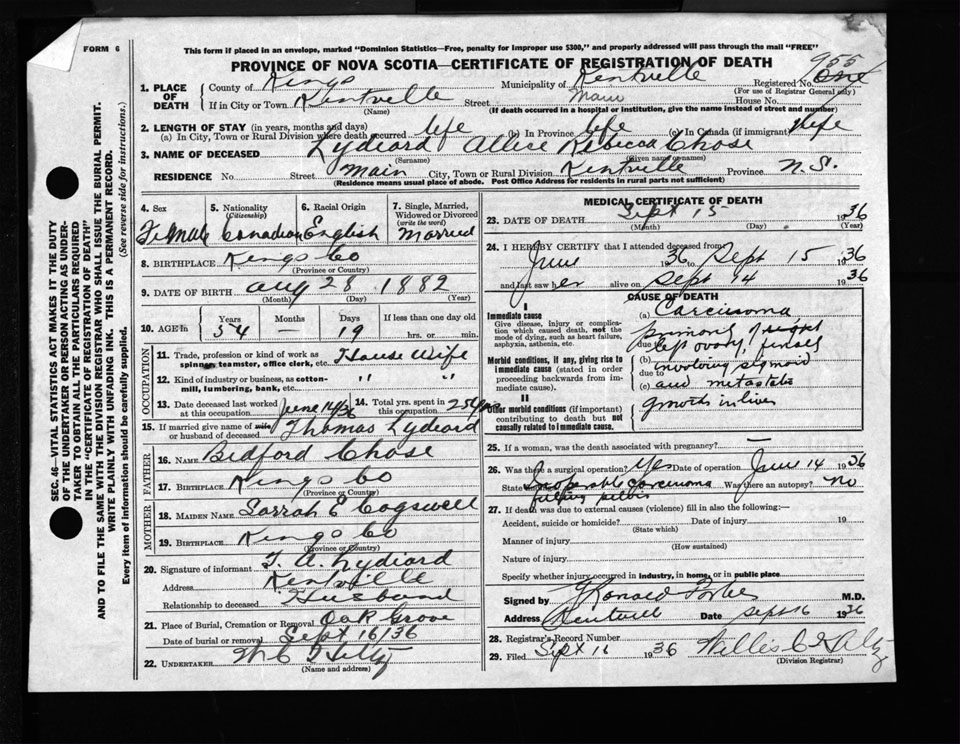 FORM 6
This form if placed in an envelope, marked "Dominion Statistics—Free, penalty for improper use $300," and properly addressed will pass through the mail "FREE"
PROVINCE OF NOVA SCOTIA—CERTIFICATE OF REGISTRATION OF DEATH
955
1. PLACE OF DEATH County of Kings Municipality of Kentville Registered No. One
(For use of Registrar General only)
If in City or Town Kentville Street Main House No.
(Name) (If death occurred in a hospital or institution, give the name instead of street and number)
2. LENGTH OF STAY (in years, months and days)
(a) In City, Town or Rural Division where death occurred life (b) In Province life (c) In Canada (if immigrant) life
3. NAME OF DECEASED Lydiard Allice Rebecca Chase
(Surname) (Given name or names)
RESIDENCE No. Street Main City, Town or Rural Division Kentville Province N.S.
(Residence means usual place of abode. Post Office Address for residents in rural parts not sufficient)
4. Sex 5. Nationality (Citizenship) 6. Racial Origin 7. Single, Married, Widowed or Divorced (write the word)
Female Canadian English Married
8. BIRTHPLACE Kings Co
(Province or Country)
9. DATE OF BIRTH Aug 28 1882
(Month) (Day) (Year)
10. AGE in Years Months Days If less than one day old
54 — 19 hrs. or min.
OCCUPATION
11. Trade, profession or kind of work as spinner, teamster, office clerk, etc. House Wife
12. Kind of industry or business, as cotton-mill, lumbering, bank, etc. " "
13. Date deceased last worked at this occupation June 14/36 14. Total yrs. spent in this occupation 25 yrs
15. If married give name of wife or husband of deceased Thomas Lydiard
FATHER
16. Name Bedford Chase
17. Birthplace Kings Co
(Province or Country)
MOTHER
18. Maiden Name Sarrah E Cogswell
19. Birthplace Kings Co
(Province or Country)
20. Signature of informant T. A. Lydiard
Address Kentville
Relationship to deceased Husband
21. Place of Burial, Cremation or Removal Oak Grove
Date of burial or removal Sept 16/36
22. UNDERTAKER W C
(Name and address)
MEDICAL CERTIFICATE OF DEATH
23. DATE OF DEATH Sept 15 1936
(Month) (Day) (Year)
24. I HEREBY CERTIFY that I attended deceased from:
June 1936 to Sept 15 1936
and last saw her alive on Sept 14 1936
CAUSE OF DEATH
I
Immediate cause
Give disease, injury or complication which caused death, not the mode of dying, such as heart failure, asphyxia, asthenia, etc.
Morbid conditions, if any, giving rise to immediate cause (stated in order proceeding backwards from immediate cause).
II
Other morbid conditions (if important) contributing to death but not causally related to immediate cause.
(a) Carcinoma
primary of right
due to left ovary,
(b) involving sigmoid
due to
(c) and metastatic
growth in liver
25. If a woman, was the death associated with pregnancy? —
26. Was there a surgical operation? Yes Date of operation June 14 1936
State findings Inoperable carcinoma Was there an autopsy? No
filling pelvis
27. If death was due to external causes (violence) fill in also the following:—
Accident, suicide or homicide? Date of injury 19
(State which)
Manner of injury
(How sustained)
Nature of injury
Specify whether injury occurred in industry, in home, or in public place
Signed by M.D.
Address Kentville Date Sept 16 1936
28. Registrar's Record Number
29. Filed Sept 16 1936 Willis C
(Division Registrar)
SEC. 46—VITAL STATISTICS ACT MAKES IT THE DUTY
OF THE UNDERTAKER OR PERSON ACTING AS UNDER-
TAKER TO OBTAIN ALL THE PARTICULARS REQUIRED
IN THE "CERTIFICATE OF REGISTRATION OF DEATH"
AND TO FILE THE SAME WITH THE DIVISION REGISTRAR WHO SHALL ISSUE THE BURIAL PERMIT.
WRITE PLAINLY WITH UNFADING INK. THIS IS A PERMANENT RECORD.
Every item of information should be carefully supplied. (See reverse side for instructions.)